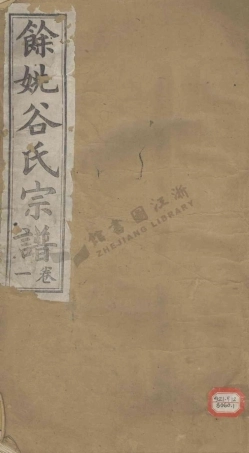 餘姚谷氏宗譜
卷一
浙江圖書館
ZHEJIANG LIBRARY